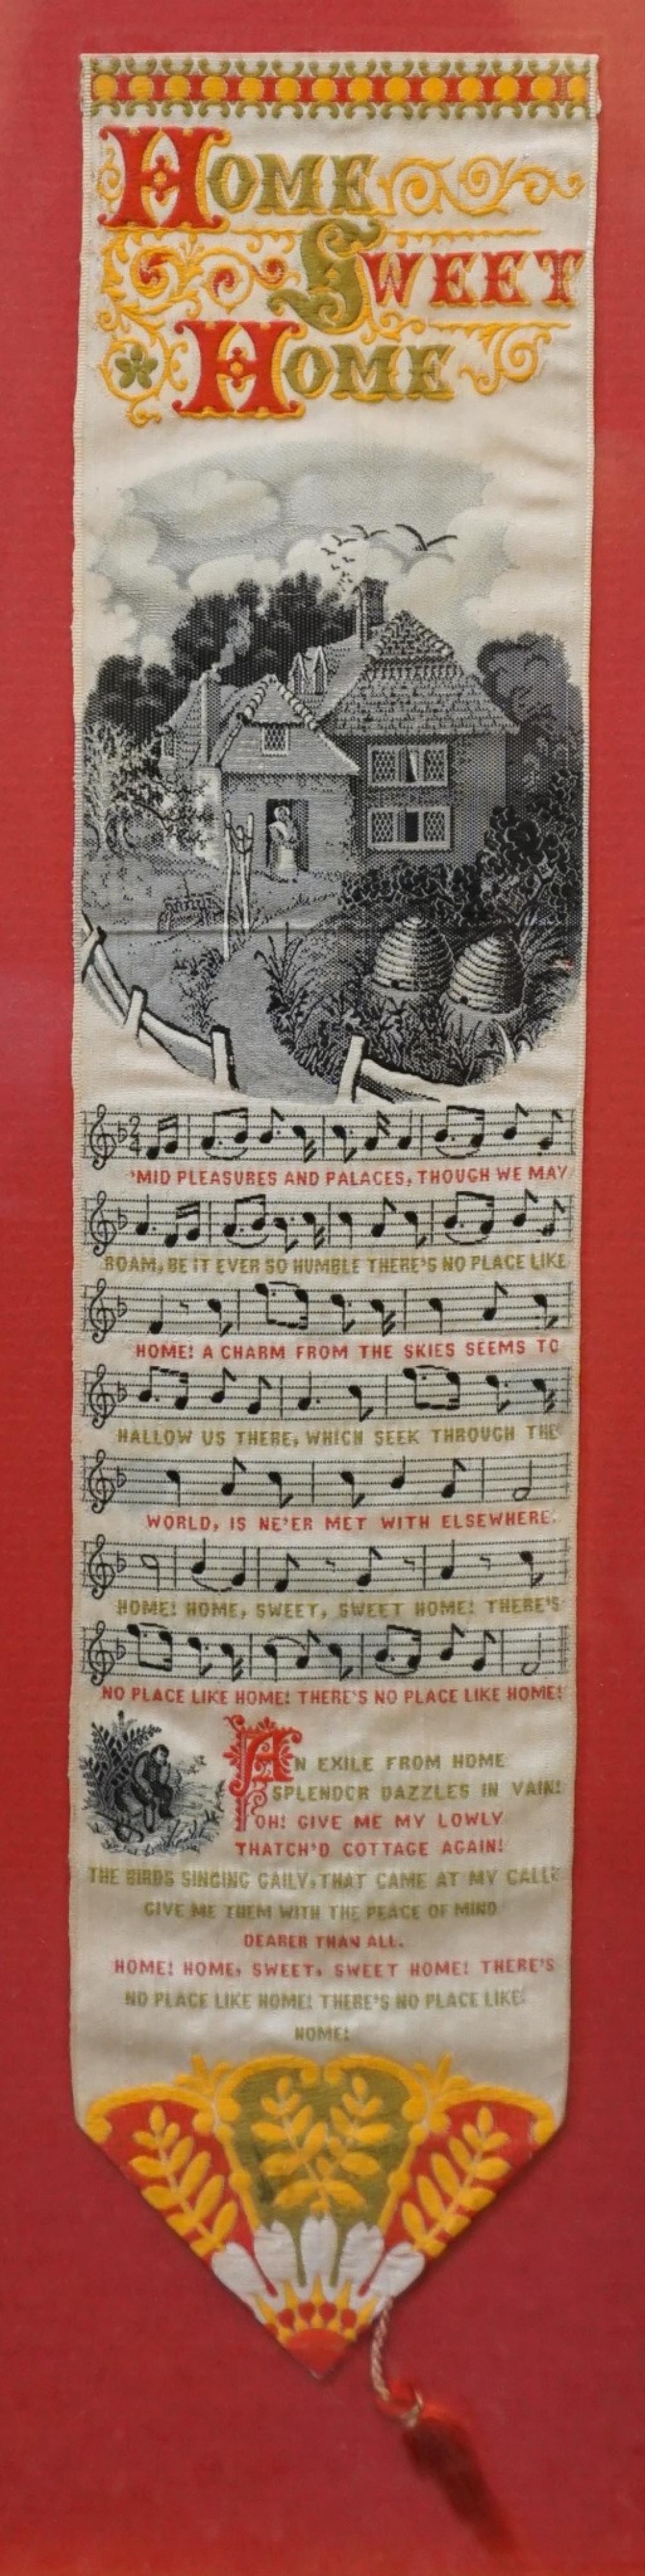 HOME
SWEET
HOME
'MID PLEASURES AND PALACES, THOUGH WE MAY
ROAM, BE IT EVER SO HUMBLE THERE'S NO PLACE LIKE
HOME! A CHARM FROM THE SKIES SEEMS TO
HALLOW US THERE, WHICH SEEK THROUGH THE
WORLD, IS NE'ER MET WITH ELSEWHERE.
HOME! HOME, SWEET, SWEET HOME! THERE'S
NO PLACE LIKE HOME! THERE'S NO PLACE LIKE HOME!
AN EXILE FROM HOME
SPLENDOR DAZZLES IN VAIN!
OH! GIVE ME MY LOWLY
THATCH'D COTTAGE AGAIN!
THE BIRDS SINGING GAILY, THAT CAME AT MY CALL!
GIVE ME THEM WITH THE PEACE OF MIND
DEARER THAN ALL.
HOME! HOME, SWEET, SWEET HOME! THERE'S
NO PLACE LIKE HOME! THERE'S NO PLACE LIKE
HOME!